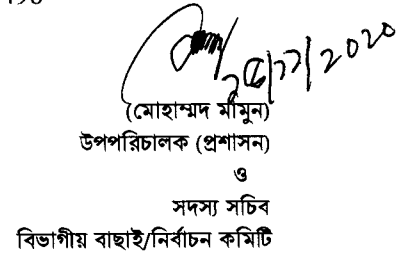 (মোহাম্মদ মামুন)
উপপরিচালক (প্রশাসন)
ও
সদস্য সচিব
বিভাগীয় বাছাই/নির্বাচন কমিটি